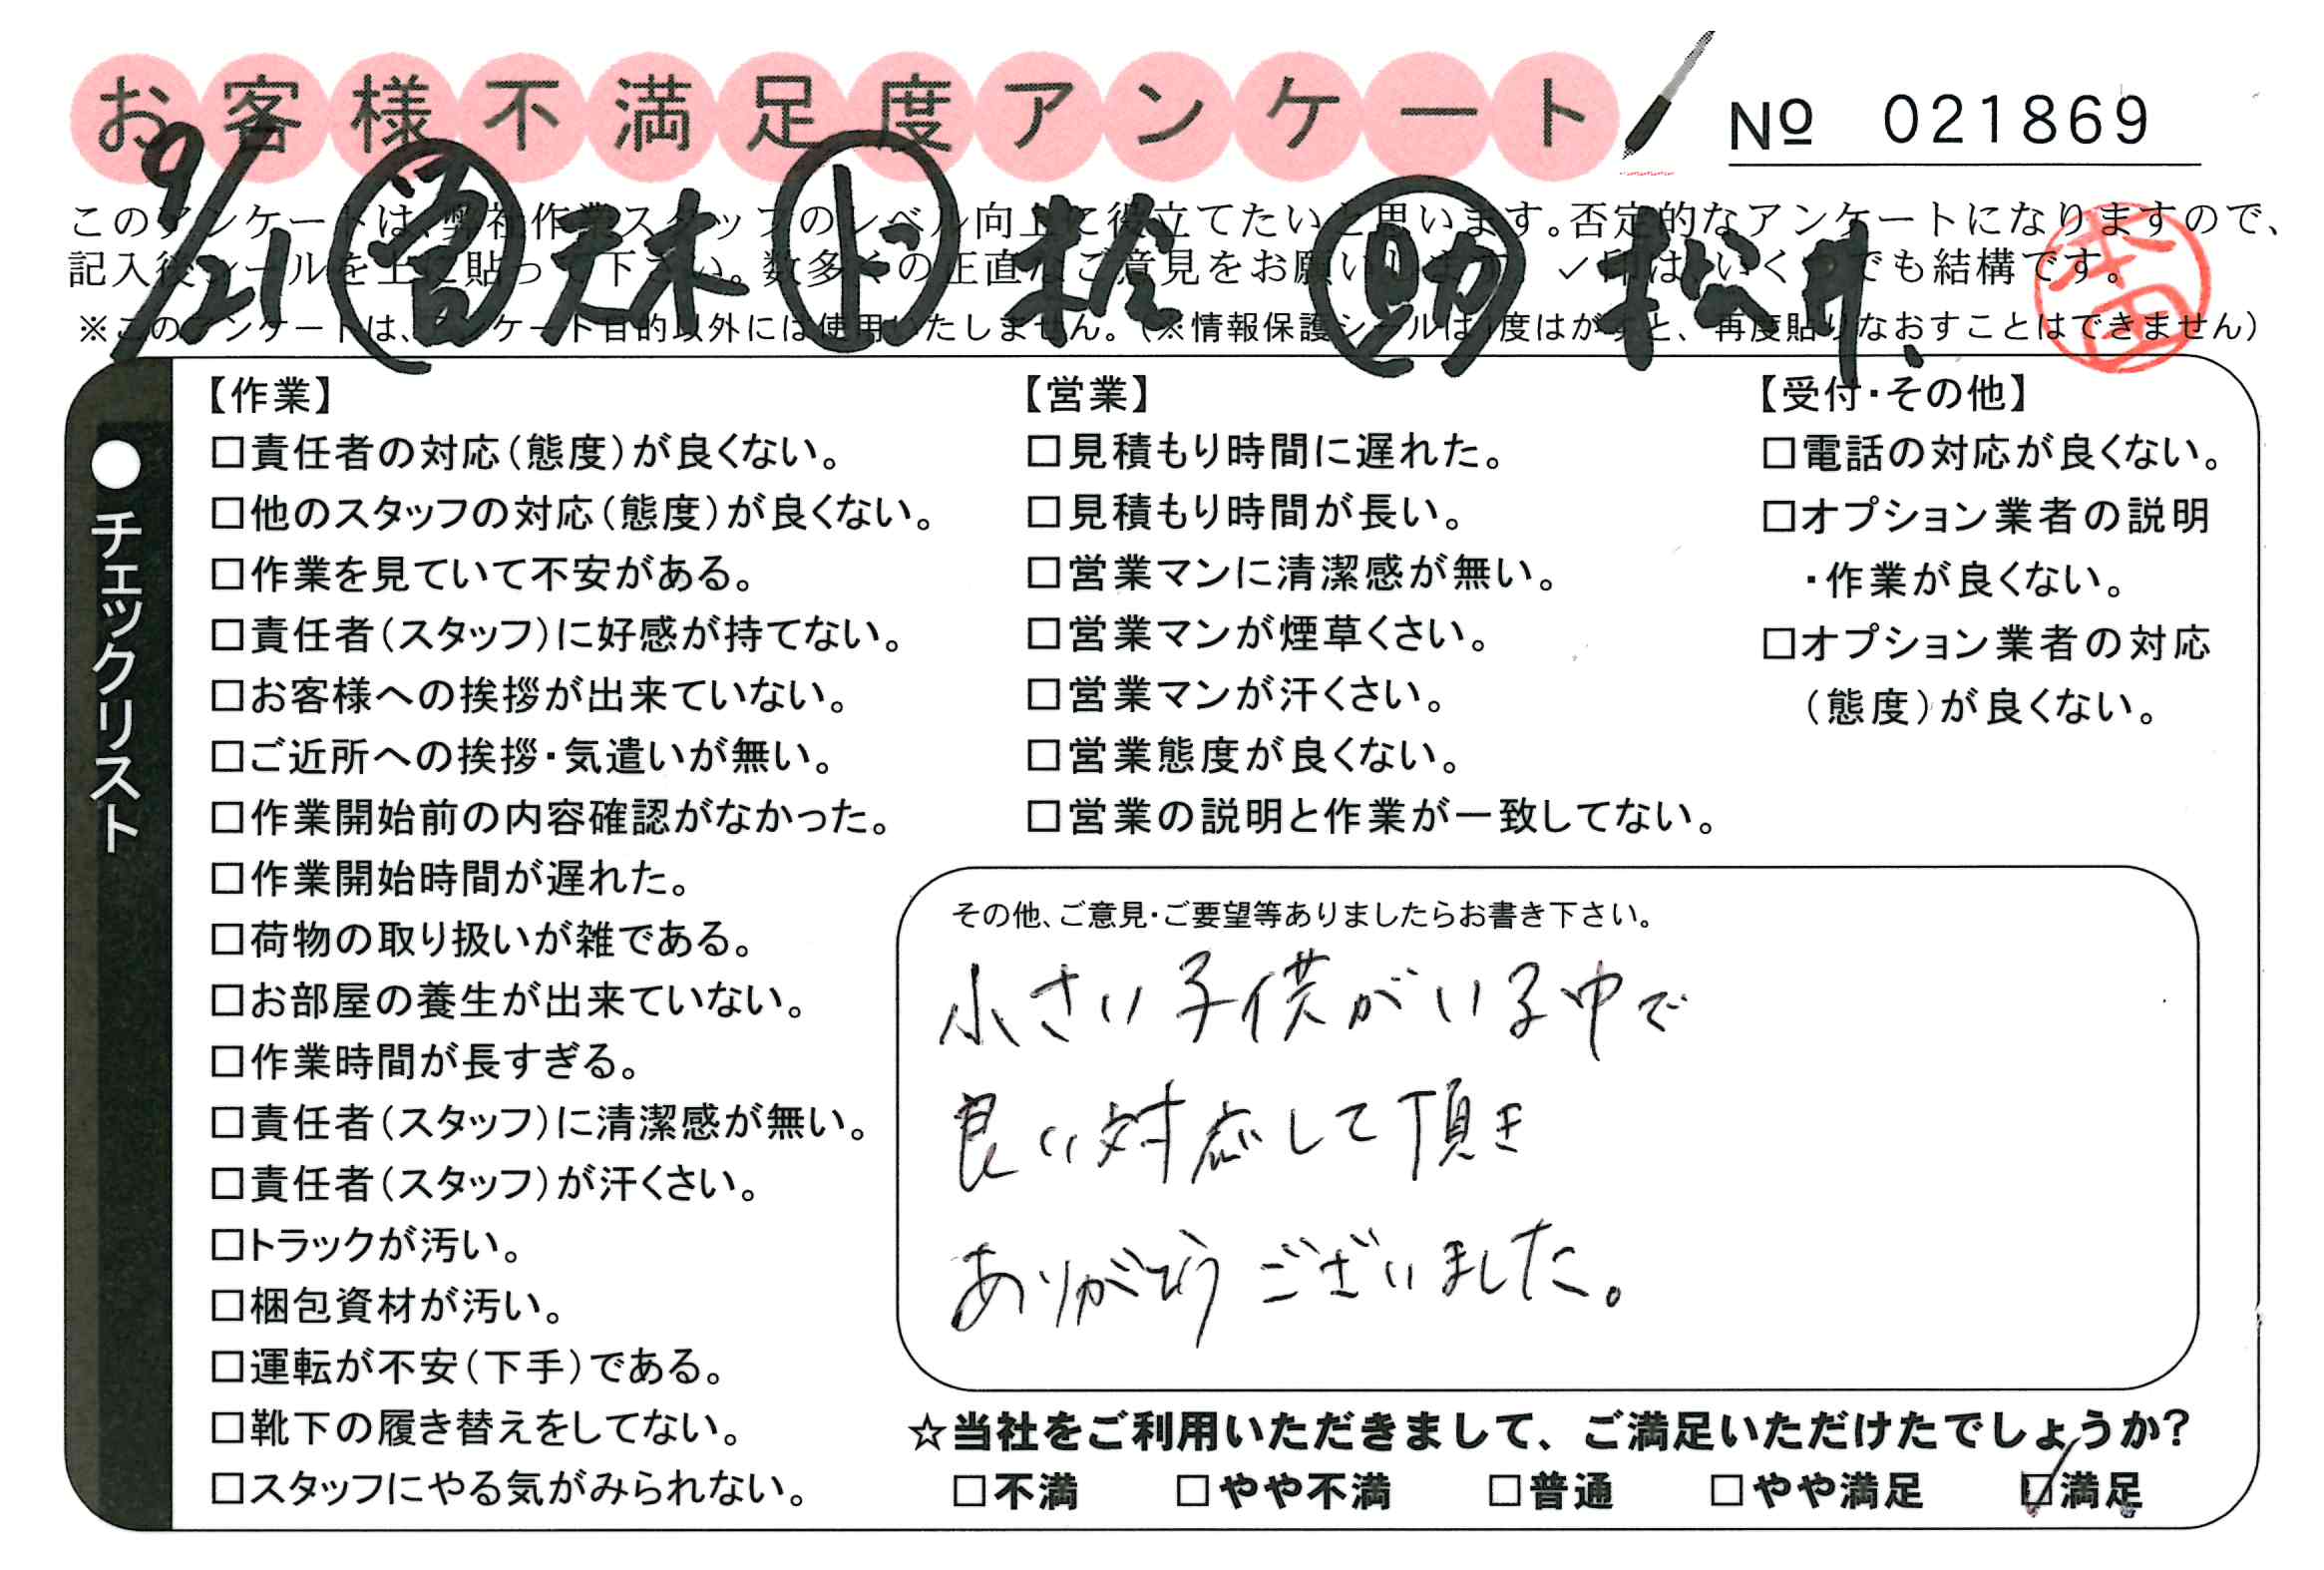 お客様不満足度アンケート
№ 021869
9/21 営 天木 ト 松 助 松井
本田
このアンケートは、弊社作業スタッフのレベル向上に役立てたいと思います。否定的なアンケートになりますので、
記入後シールを上に貼って下さい。数多くの正直なご意見をお願いします。✓印はいくつでも結構です。
※このアンケートは、アンケート目的以外には使用いたしません。(※情報保護シールは1度はがすと、再度貼りなおすことはできません)
●チェックリスト
【作業】
□責任者の対応(態度)が良くない。
□他のスタッフの対応(態度)が良くない。
□作業を見ていて不安がある。
□責任者(スタッフ)に好感が持てない。
□お客様への挨拶が出来ていない。
□ご近所への挨拶・気遣いが無い。
□作業開始前の内容確認がなかった。
□作業開始時間が遅れた。
□荷物の取り扱いが雑である。
□お部屋の養生が出来ていない。
□作業時間が長すぎる。
□責任者(スタッフ)に清潔感が無い。
□責任者(スタッフ)が汗くさい。
□トラックが汚い。
□梱包資材が汚い。
□運転が不安(下手)である。
□靴下の履き替えをしてない。
□スタッフにやる気がみられない。
【営業】
□見積もり時間に遅れた。
□見積もり時間が長い。
□営業マンに清潔感が無い。
□営業マンが煙草くさい。
□営業マンが汗くさい。
□営業態度が良くない。
□営業の説明と作業が一致してない。
【受付・その他】
□電話の対応が良くない。
□オプション業者の説明
・作業が良くない。
□オプション業者の対応
(態度)が良くない。
その他、ご意見・ご要望等ありましたらお書き下さい。
小さい子供がいる中で
良い対応して頂き
ありがとうございました。
☆当社をご利用いただきまして、ご満足いただけたでしょうか?
□不満 □やや不満 □普通 □やや満足 ☑満足